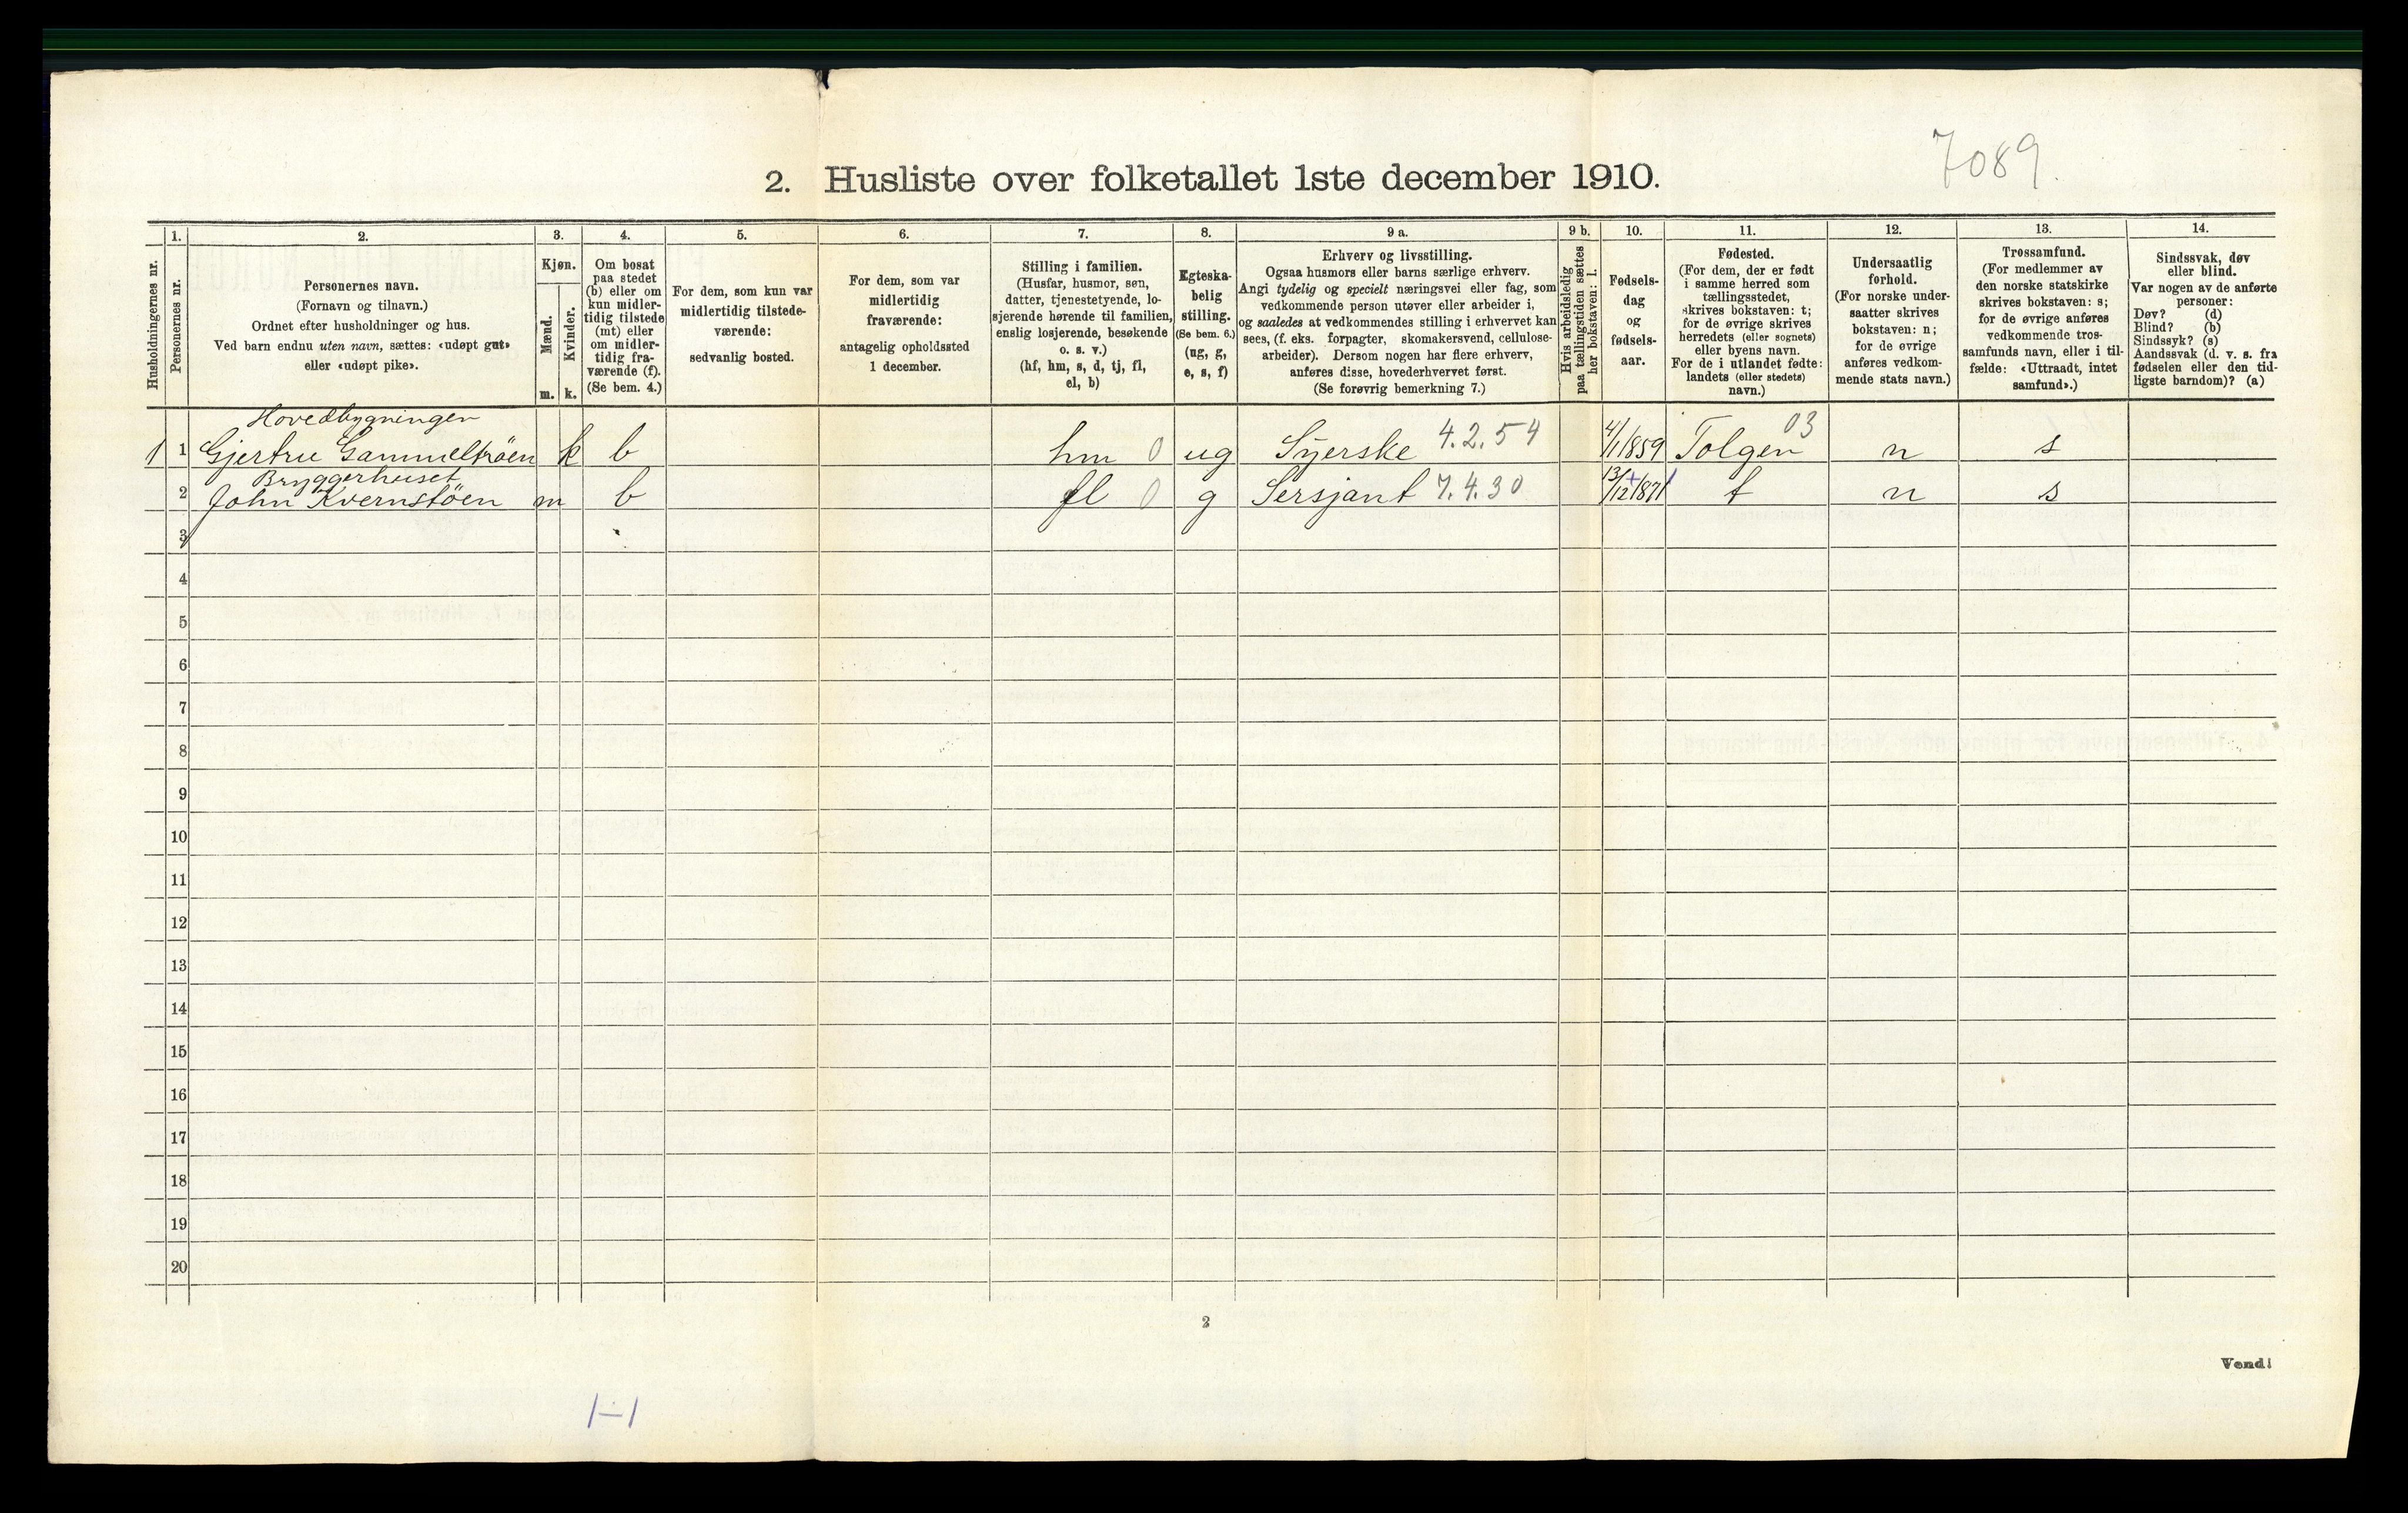 7089.
2. Husliste over folketallet 1ste december 1910.
Husholdningernes nr.
1.
Personernes nr.
2.
Personernes navn.
(Fornavn og tilnavn.)
Ordnet efter husholdninger og hus.
Ved barn endnu uten navn, sættes: «udøpt gut»
eller «udøpt pike».
3.
Kjøn.
Mænd.
Kvinder.
m. k.
4.
Om bosat
paa stedet
(b) eller om
kun midler-
tidig tilstede
(mt) eller
om midler-
tidig fra-
værende (f).
(Se bem. 4.)
5.
For dem, som kun var
midlertidig tilstede-
værende:
sedvanlig bosted.
6.
For dem, som var
midlertidig
fraværende:
antagelig opholdssted
1 december.
7.
Stilling i familien.
(Husfar, husmor, søn,
datter, tjenestetyende, lo-
sjerende hørende til familien,
enslig losjerende, besøkende
o. s. v.)
(hf, hm, s, d, tj, fl,
el, b)
8.
Egteska-
belig
stilling.
(Se bem. 6.)
(ug, g,
e, s, f)
9 a.
Erhverv og livsstilling.
Ogsaa husmors eller barns særlige erhverv.
Angi tydelig og specielt næringsvei eller fag, som
vedkommende person utøver eller arbeider i,
og saaledes at vedkommendes stilling i erhvervet kan
sees, (f. eks. forpagter, skomakersvend, cellulose-
arbeider). Dersom nogen har flere erhverv,
anføres disse, hovederhvervet først.
(Se forøvrig bemerkning 7.)
9 b.
Hvis arbeidsledig
paa tællingstiden sættes
her bokstaven: l.
10.
Fødsels-
dag
og
fødsels-
aar.
11.
Fødested.
(For dem, der er født
i samme herred som
tællingsstedet,
skrives bokstaven: t;
for de øvrige skrives
herredets (eller sognets)
eller byens navn.
For de i utlandet fødte:
landets (eller stedets)
navn.)
12.
Undersaatlig
forhold.
(For norske under-
saatter skrives
bokstaven: n;
for de øvrige
anføres vedkom-
mende stats navn.)
13.
Trossamfund.
(For medlemmer av
den norske statskirke
skrives bokstaven: s;
for de øvrige anføres
vedkommende tros-
samfunds navn, eller i til-
fælde: «Uttraadt, intet
samfund».)
14.
Sindssvak, døv
eller blind.
Var nogen av de anførte
personer:
Døv? (d)
Blind? (b)
Sindssyk? (s)
Aandssvak (d. v. s. fra
fødselen eller den tid-
ligste barndom)? (a)
Hovedbygningen
1 1 Gjertru Gammeltröen k b hm 0 ug Syerske 4.2.54 4/1 1859 Tolgen 03 n s
Bryggerhuset
2 John Kvernstöen m b fl 0 g Sersjant 7.4.30 13/12 1871 t n s
3
4
5
6
7
8
9
10
11
12
13
14
15
16
17
18
19
20
2
Vend!
1-1